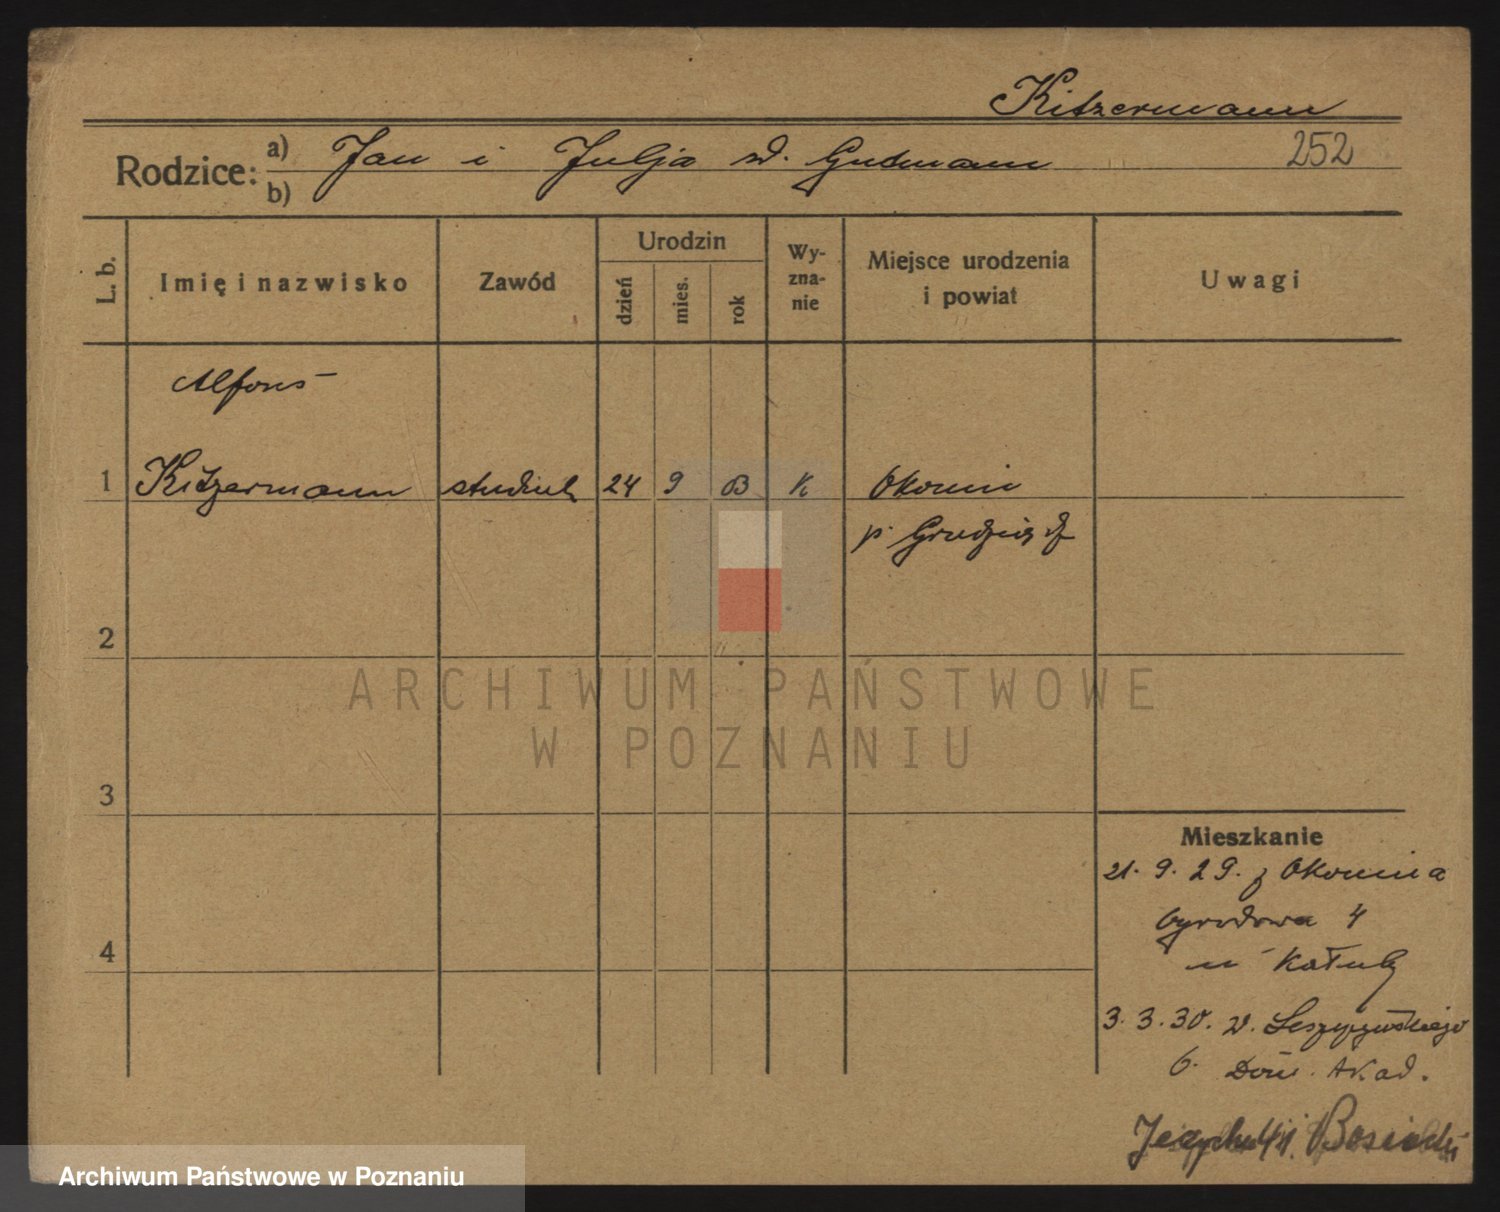 Kitzermann
Rodzice: a) Jan i Julja zd. Gutmann 252
b)
L. b. Imię i nazwisko Zawód Urodzin dzień mies. rok Wy-zna-nie Miejsce urodzenia i powiat Uwagi
Alfons
1 Kitzermann student 24 9 03 K Okonin
p. Grudziądz
2
ARCHIWUM PAŃSTWOWE
W POZNANIU
3
Mieszkanie
21. 9. 29. z Okonina
Ogrodowa 4
4
u
3. 3. 30. W. Leszczyńskiego
6. Dom. Akad.
Archiwum Państwowe w Poznaniu